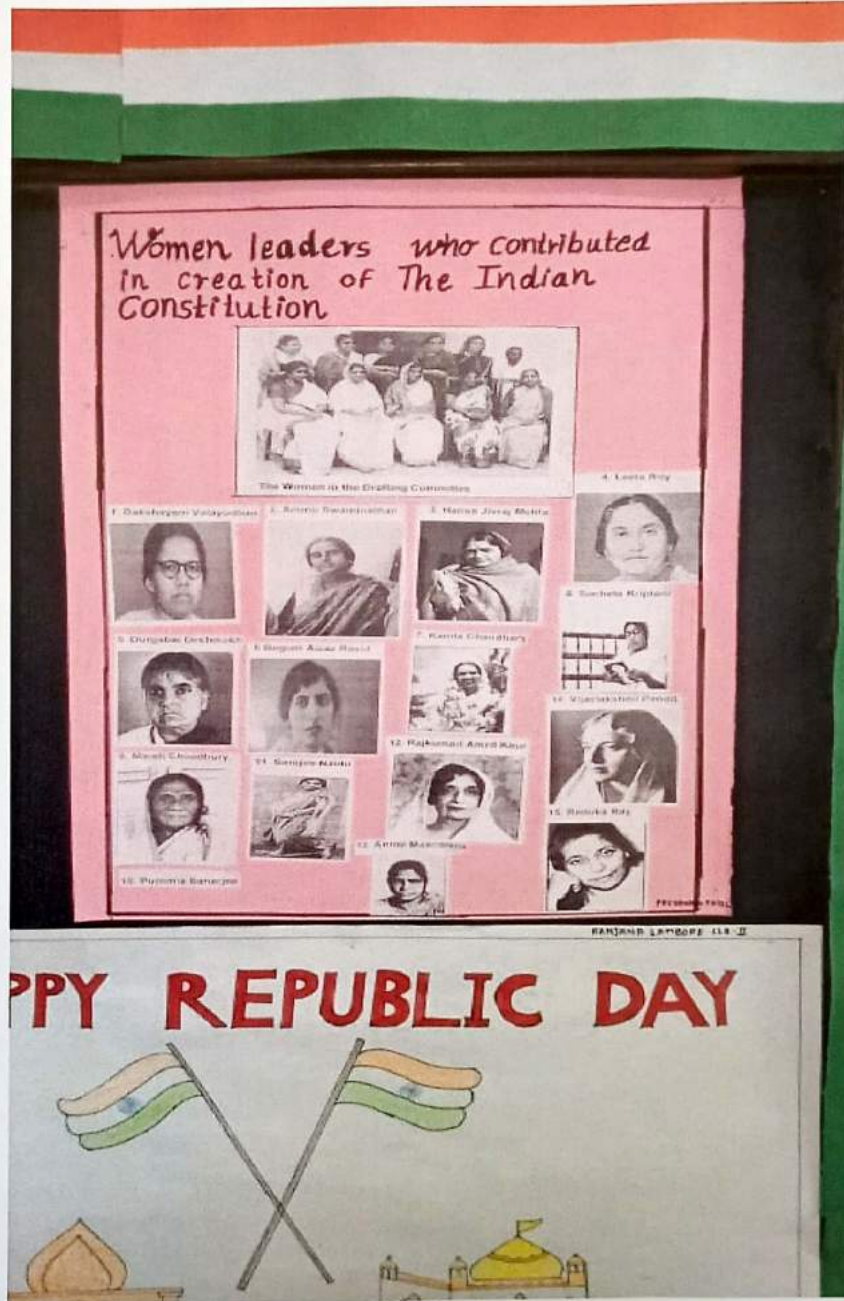 Women leaders who contributed
in creation of The Indian
Constitution
The Women in the Drafting Committee
4. Leela Roy
1. Dakshayani Velayudhan
2. Ammu Swaminathan
3. Hansa Jivraj Mehta
8. Sucheta Kriplani
5. Durgabai Deshmukh
6. Begum Aizaz Rasul
7. Kamla Chaudhary
14. Vijaylakshmi Pandit
9. Malati Choudhury
11. Sarojini Naidu
12. Rajkumari Amrit Kaur
15. Renuka Ray
13. Annie Mascarene
10. Purnima Banerjee
RANJANA LAMBORE LLB-II
PPY REPUBLIC DAY